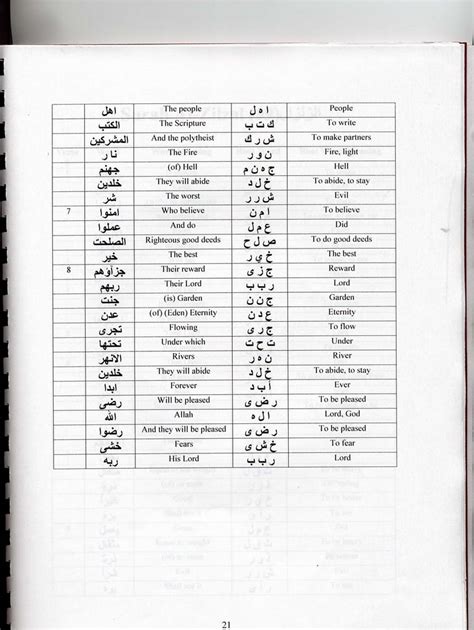 اهل The people ا ه ل People
الكتب The Scripture ك ت ب To write
المشركين And the polytheist ش ر ك To make partners
نار The Fire ن و ر Fire, light
جهنم (of) Hell ج ه ن م Hell
خلدين They will abide خ ل د To abide, to stay
شر The worst ش ر ر Evil
7 امنوا Who believe ا م ن To believe
عملوا And do ع م ل Did
الصلحت Righteous good deeds ص ل ح To do good deeds
خير The best خ ي ر The best
8 جزاؤهم Their reward ج ز ى Reward
ربهم Their Lord ر ب ب Lord
جنت (is) Garden ج ن ن Garden
عدن (of) (Eden) Eternity ع د ن Eternity
تجرى Flowing ج ر ى To flow
تحتها Under which ت ح ت Under
الانهر Rivers ن ه ر River
خلدين They will abide خ ل د To abide, to stay
ابدا Forever أ ب د Ever
رضى Will be pleased ر ض ى To be pleased
الله Allah ا ل ه Lord, God
رضوا And they will be pleased ر ض ى To be pleased
خشى Fears خ ش ى To fear
ربه His Lord ر ب ب Lord
21